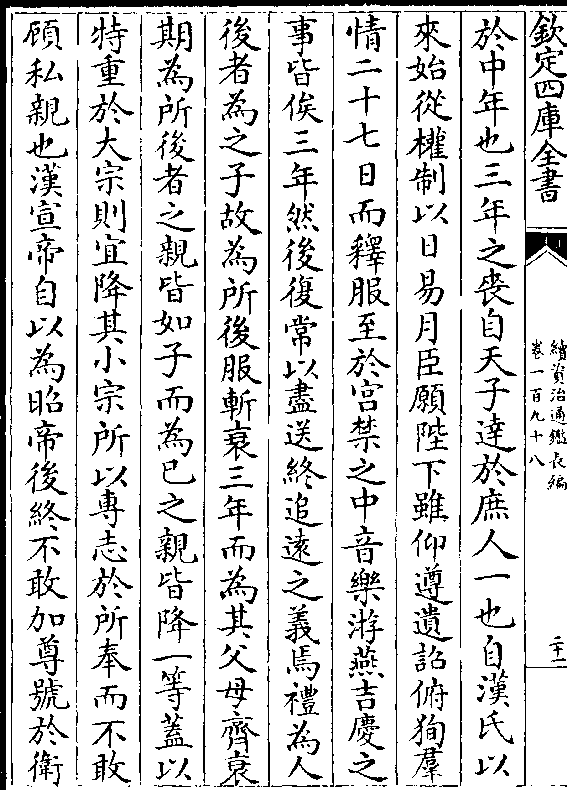 欽定四庫全書
續資治通鑑長編
卷一百九十八
二十一
於中年也三年之喪自天子達於庶人一也自漢氏以
來始從權制以日易月臣願陛下雖仰遵遺詔俯狥羣
情二十七日而釋服至於宫禁之中音樂游燕吉慶之
事皆俟三年然後復常以盡送終追逺之義焉禮為人
後者為之子故為所後服斬衰三年而為其父母齊衰
期為所後者之親皆如子而為已之親皆降一等葢以
特重於大宗則宜降其小宗所以専志於所奉而不敢
顧私親也漢宣帝自以為昭帝後終不敢加尊號於衛